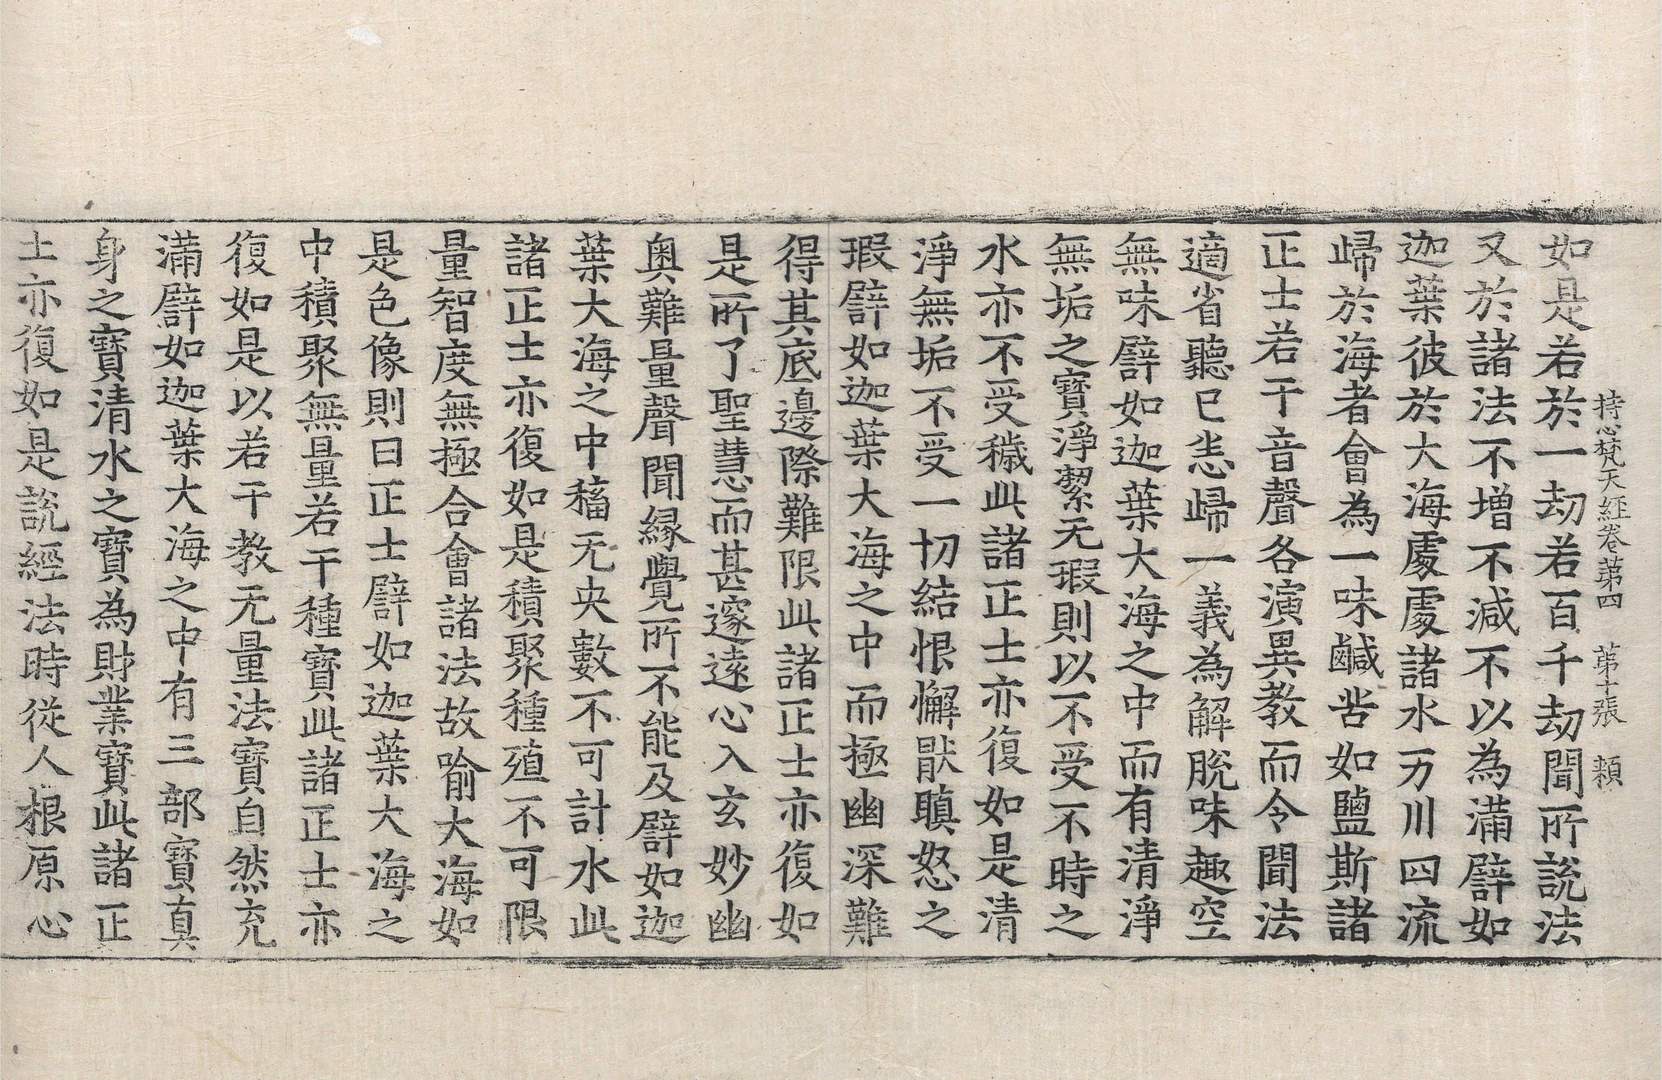 持心梵天經卷第四　第十張　頛
如是若於一劫若百千劫聞所說法
又於諸法不增不減不以為滿譬如
迦葉彼於大海處處諸水万川四流
歸於海者會為一味鹹苦如鹽斯諸
正士若干音聲各演異教而令聞法
適省聽已恚歸一義為解脫味趣空
無味譬如迦葉大海之中而有清淨
無垢之寶淨潔无瑕則以不受不時之
水亦不受穢此諸正士亦復如是清
淨無垢不受一切結恨懈猒瞋怒之
瑕譬如迦葉大海之中而極幽深難
得其底邊際難限此諸正士亦復如
是所了聖慧而甚邃遠心入玄妙幽
奧難量聲聞緣覺所不能及譬如迦
葉大海之中稸无央數不可計水此
諸正士亦復如是積聚種殖不可限
量智度無極合會諸法故喻大海如
是色像則曰正士譬如迦葉大海之
中積聚無量若干種寶此諸正士亦
復如是以若干教无量法寶自然充
滿譬如迦葉大海之中有三部寶真
身之寶清水之寶為財業寶此諸正
士亦復如是說經法時從人根原心